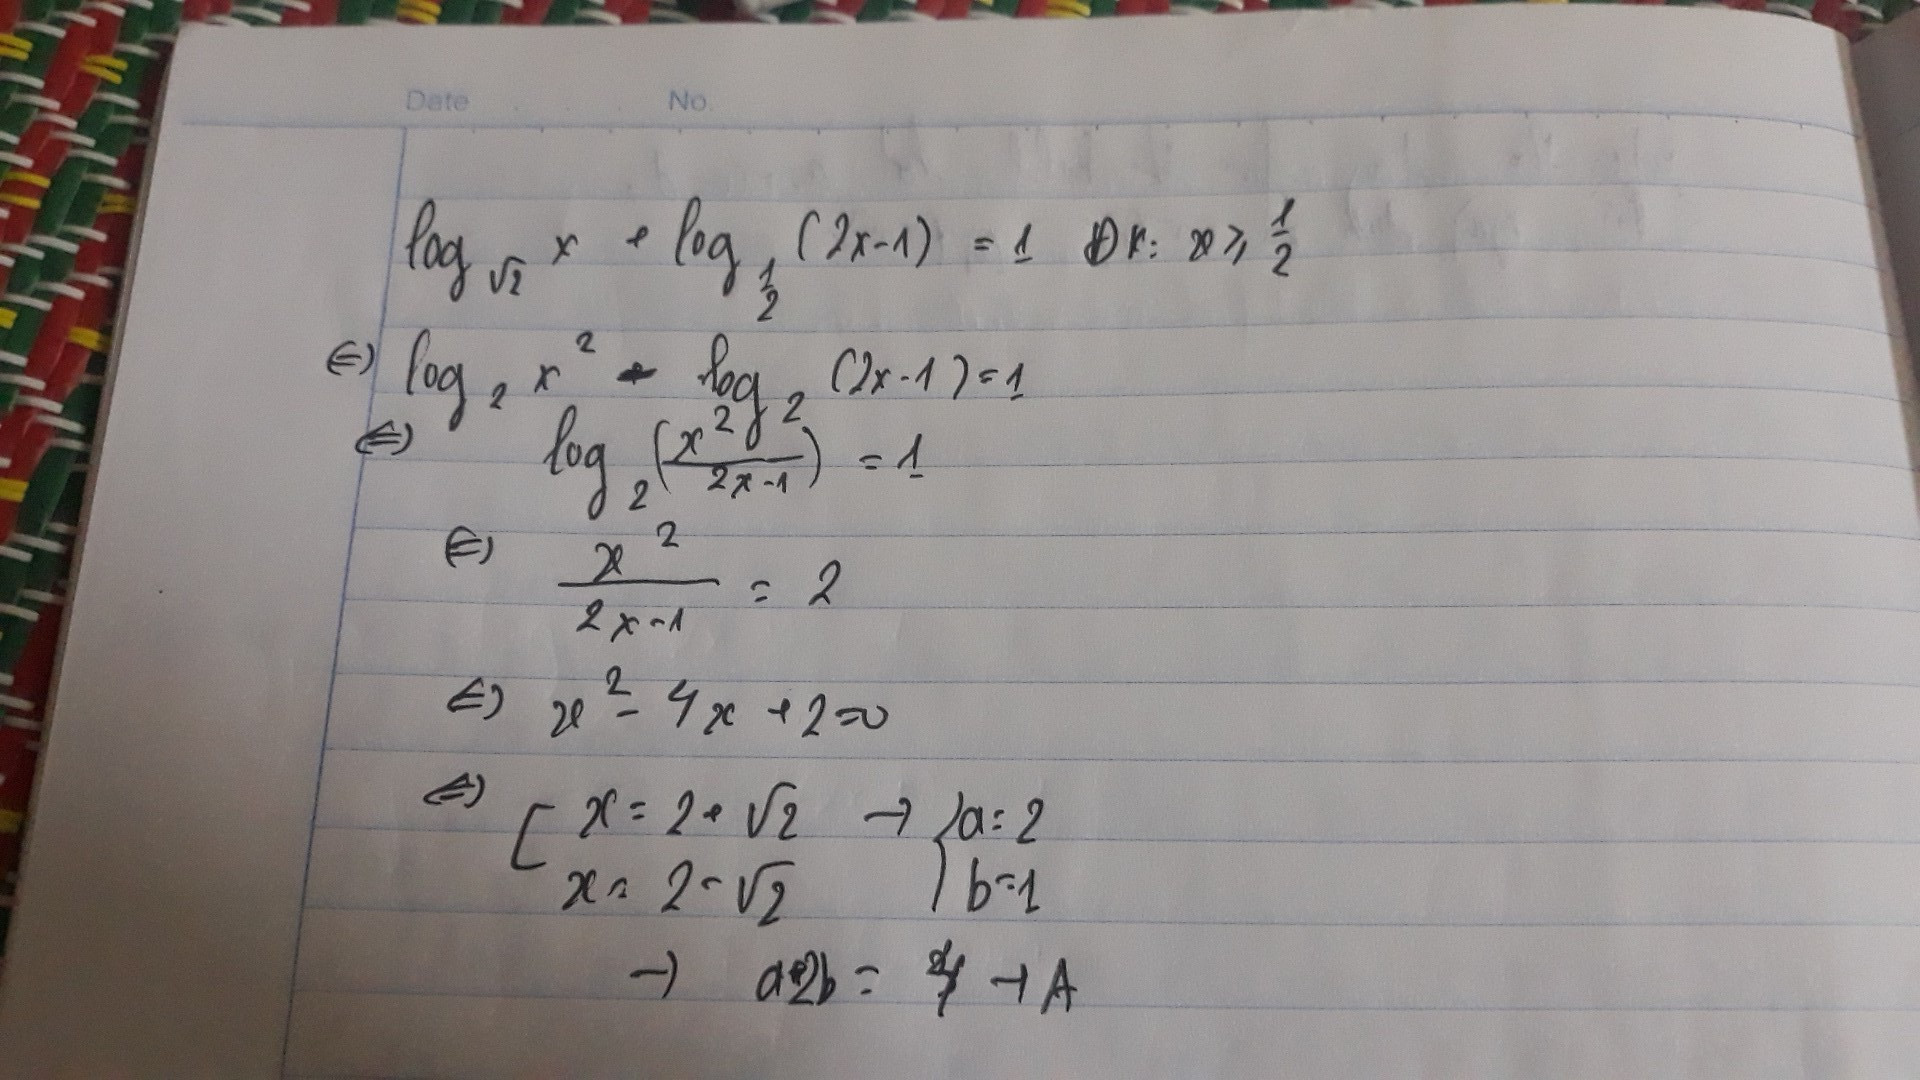 Date No.
log_√2 x + log_1/2 (2x-1) = 1 ĐK: x ≥ 1/2
⇔ log_2 x² - log_2 (2x-1) = 1
⇔ log_2 (x²/(2x-1)) = 1
⇔ x²/(2x-1) = 2
⇔ x² - 4x + 2 = 0
⇔ [ x = 2 + √2 → { a = 2
x = 2 - √2 b = 1
→ a+2b = 4 → A